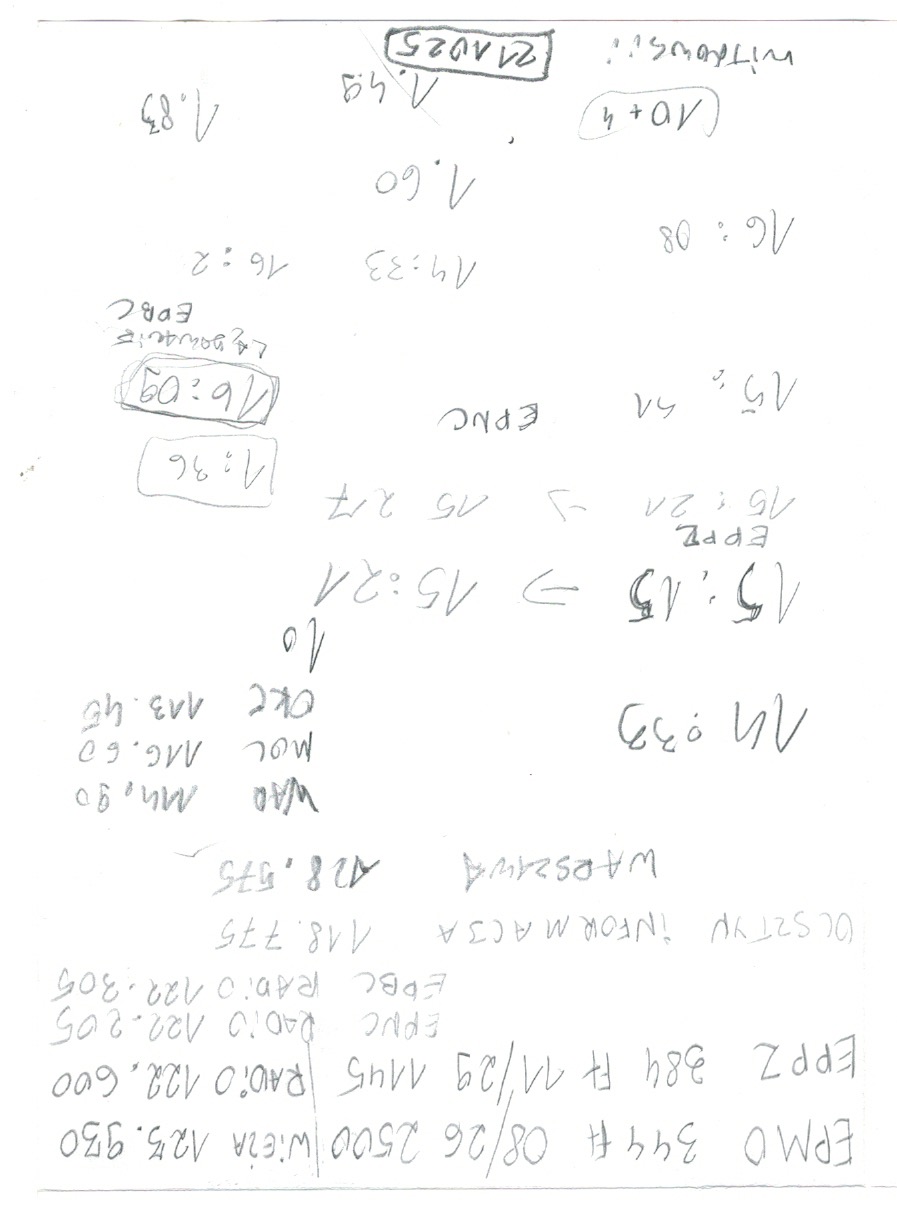 EPMO 344 Ft 08/26 2500 WIEŻA 123.930
EPPZ 384 Ft 11/29 1145 RADIO 122.600
EPNC RADIO 122.205
EPBC RADIO 122.305
OLSZTYN INFORMACJA 118.775
WARSZAWA 128.575
WAR 114.90
MOL 116.60
OKE 113.45
14:33
10
15:15 → 15:21
EPPZ
15:21 → 15 27
1:36
15: 51 EPNC
16:09
LĄDOWANIE
EPBC
14:33 16:2
16: 08
1.60
10+4
1.83
1.49
211025